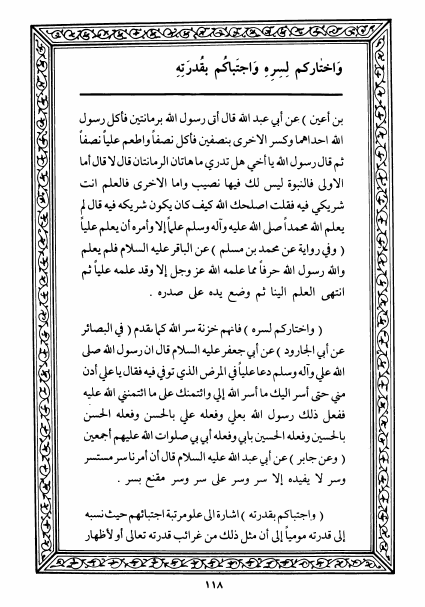 وَاختاركم لِسرِهِ وَاجتَباكُم بِقُدرَتِهِ
بن أعين ) عن أبي عبد الله قال أتى رسول الله برمانتين فأكل رسول
الله احداهما وكسر الاخرى بنصفين فأكل نصفاً واطعم علياً نصفاً
ثم قال رسول الله يا أخي هل تدري ما هاتان الرمانتان قال لا قال أما
الاولى فالنبوة ليس لك فيها نصيب واما الاخرى فالعلم انت
شريكي فيه فقلت اصلحك الله كيف كان يكون شريكه فيه قال لم
يعلم الله محمداً صلى الله عليه وآله وسلم علماً إلا وأمره أن يعلم علياً
( وفي رواية عن محمد بن مسلم ) عن الباقر عليه السلام فلم يعلم
والله رسول الله حرفاً مما علمه الله عز وجل إلا وقد علمه علياً ثم
انتهى العلم الينا ثم وضع يده على صدره .
( واختاركم لسره ) فانهم خزنة سر الله كما تقدم ( في البصائر
عن أبي الجارود ) عن أبي جعفر عليه السلام قال ان رسول الله صلى
الله علي وآله وسلم دعا علياً في المرض الذي توفي فيه فقال يا علي أدن
مني حتى أسر اليك ما أسر الله إلي وائتمنك على ما ائتمنني الله عليه
ففعل ذلك رسول الله بعلي وفعله علي بالحسن وفعله الحسن
بالحسين وفعله الحسين بابي وفعله أبي بي صلوات الله عليهم أجمعين
( وعن جابر ) عن أبي عبد الله عليه السلام قال أن أمرنا سر مستسر
وسر لا يفيده إلا سر وسر على سر وسر مقنع بسر .
( واجتباكم بقدرته ) اشارة الى علو مرتبة اجتبائهم حيث نسبه
إلى قدرته مومياً إلى أن مثل ذلك من غرائب قدرته تعالى أو لأظهار
١١٨